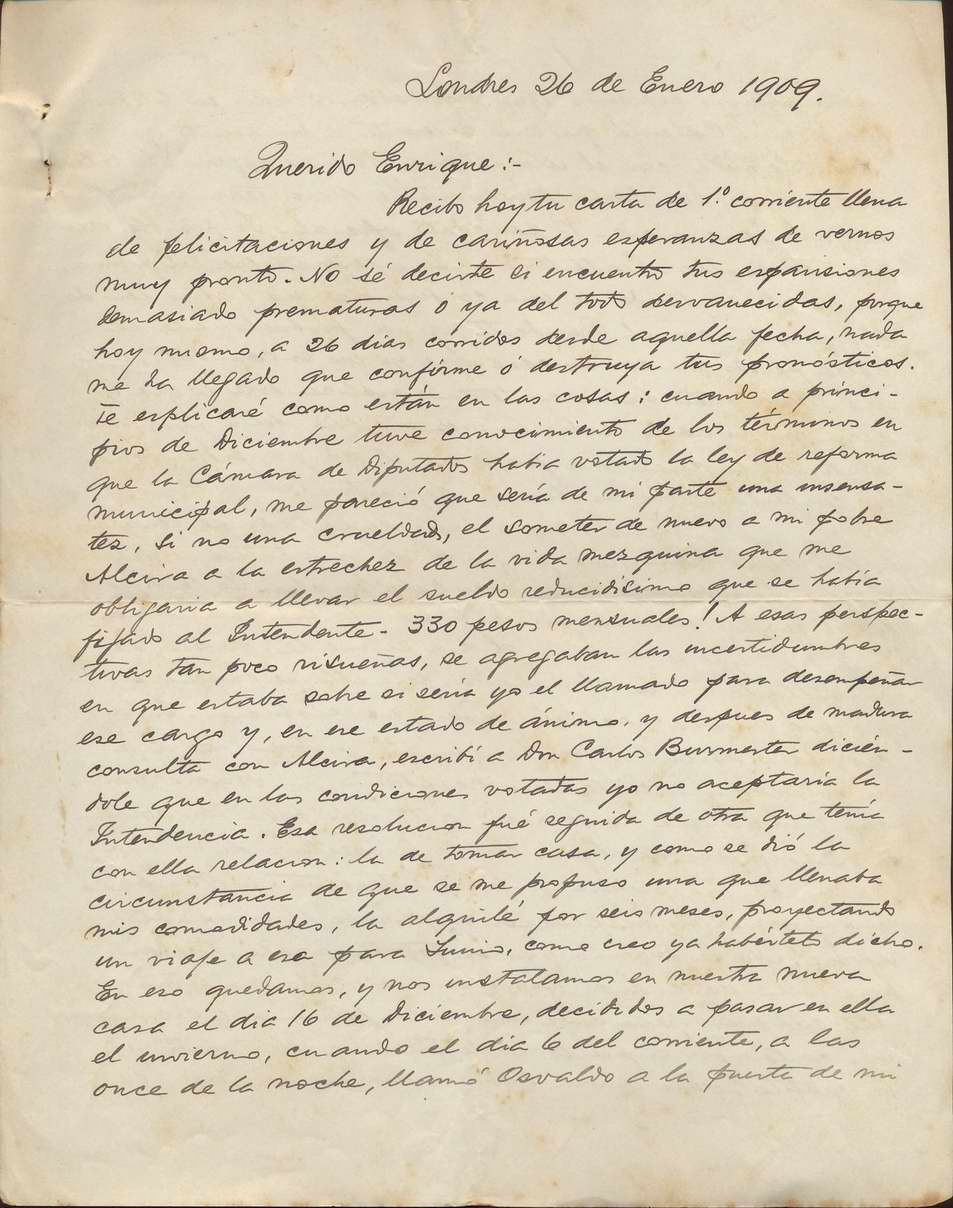 Londres 26 de Enero 1909.
Querido Enrique:-
Recibo hoy tu carta de 1.º corriente llena
de felicitaciones y de cariñosas esperanzas de vernos
muy pronto. No sé decirte si encuentro tus espansiones
demasiado prematuras ó ya del todo desvanecidas, porque
hoy mismo, a 26 dias corridos desde aquella fecha, nada
me ha llegado que confirme ó destruya tus pronósticos.
Te esplicaré como están en las cosas: cuando a princi-
pios de Diciembre tuve conocimiento de los términos en
que la Cámara de Diputados habia votado la ley de reforma
municipal, me pareció que seria de mi parte una insensa-
tez, si no una crueldad, el someter de nuevo a mi pobre
Alcira a la estrechez de la vida mezquina que me
obligaria a llevar el sueldo reducidisimo que se habia
fijado al Intendente - 330 pesos mensuales! A esas perspec-
tivas tan poco risueñas, se agregaban las incertidumbres
en que estaba sobre si seria yo el llamado para desempeñar
ese cargo y, en ese estado de ánimo, y despues de madura
consulta con Alcira, escribí a Don Carlos Burmester dicién-
dole que en las condiciones votadas yo no aceptaria la
Intendencia. Esa resolucion fué seguida de otra que tenia
con ella relacion: la de tomar casa, y como se dió la
circunstancia de que se me propuso una que llenaba
mis comodidades, la alquilé por seis meses, proyectando
un viaje a esa para Junio, como creo ya habértelo dicho.
En eso quedamos, y nos instalamos en nuestra nueva
casa el dia 16 de Diciembre, decididos a pasar en ella
el invierno, cuando el dia 6 del corriente, a las
once de la noche, llamó Osvaldo a la puerta de mi